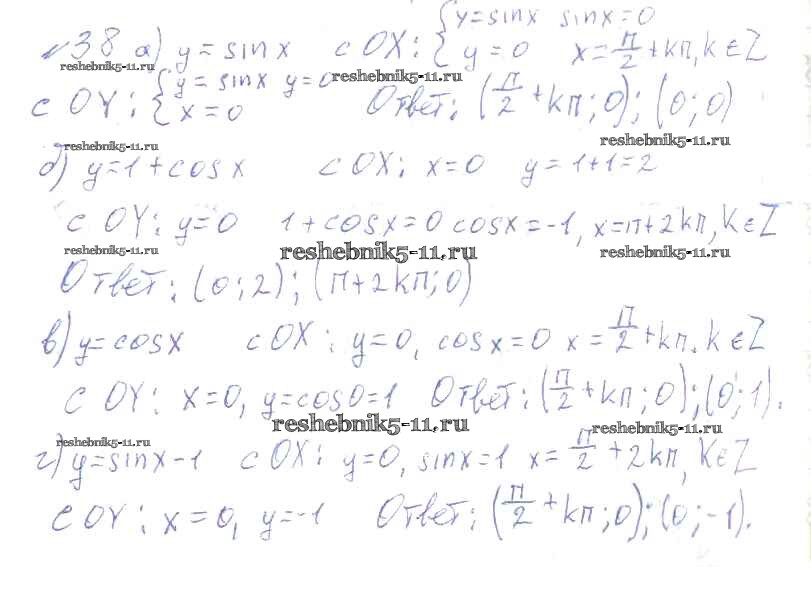 {y=sinx sinx=0
№38 а) y=sinx с OX: {y=0 x=π/2+kπ, k∈Z
reshebnik5-11.ru reshebnik5-11.ru
с OY: {y=sinx y=0
{x=0 Ответ: (π/2+kπ;0);(0;0)
reshebnik5-11.ru reshebnik5-11.ru
б) y=1+cosx с OX: x=0 y=1+1=2
с OY: y=0 1+cosx=0 cosx=-1, x=π+2kπ, k∈Z
reshebnik5-11.ru reshebnik5-11.ru reshebnik5-11.ru
Ответ: (0;2);(π+2kπ;0)
в) y=cosx с OX: y=0, cosx=0 x=π/2+kπ. k∈Z
с OY: x=0, y=cos0=1 Ответ: (π/2+kπ;0);(0;1).
reshebnik5-11.ru reshebnik5-11.ru reshebnik5-11.ru
г) y=sinx-1 с OX: y=0, sinx=1 x=π/2+2kπ, k∈Z
с OY: x=0, y=-1 Ответ: (π/2+kπ;0);(0;-1).